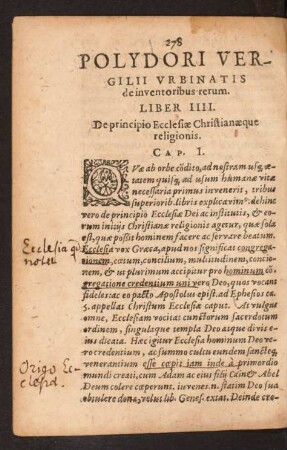 278
POLYDORI VER-
GILII VRBINATIS
de inuentoribus rerum.
LIBER IIII.
De principio Ecclesiæ Christianæque
religionis.
CAP. I.
QVæ ab orbe cōdito, ad nostram usq; æ-
tatem quisq; ad usum humanæ uitæ
necessaria primus inuenerit, tribus
superiorib. libris explicauimꝰ: dehinc
uero de principio Ecclesiæ Dei ac institutis, & eo-
rum initijs Christianæ religionis agetur, quæ sola
est, quæ possit hominem facere ac seruare beatum.
Ecclesia uox Græca, apud nos significat congrega-
tionem, cœtum, concilium, multitudinem, concio-
nem, & ut plurimum accipitur pro hominum cō-
gregatione credentium uni uero Deo, quos uocat
fideles: ac eo pacto Apostolus epist. ad Ephesios ca.
5. appellat Christum Ecclesiæ caput. At uulgus
omne, Ecclesiam uocitat cunctorum sacerdotum
ordinem, singulaque templa Deo asque diuis ei-
us dicata. Hæc igitur Ecclesia hominum Deo ue-
ro credentium, ac summo cultu eundem sanctéq;
uenerantium esse cœpit iam inde à primordio
mundi creati, cum Adam ac eius filij Cain & Abel
Deum colere cœperunt. iuuenes. n. statim Deo sua
obtulere dona, uelut lib. Genes. extat. Deinde cre-
Ecclesia qd
notet
Origo Ec-
clesiæ.